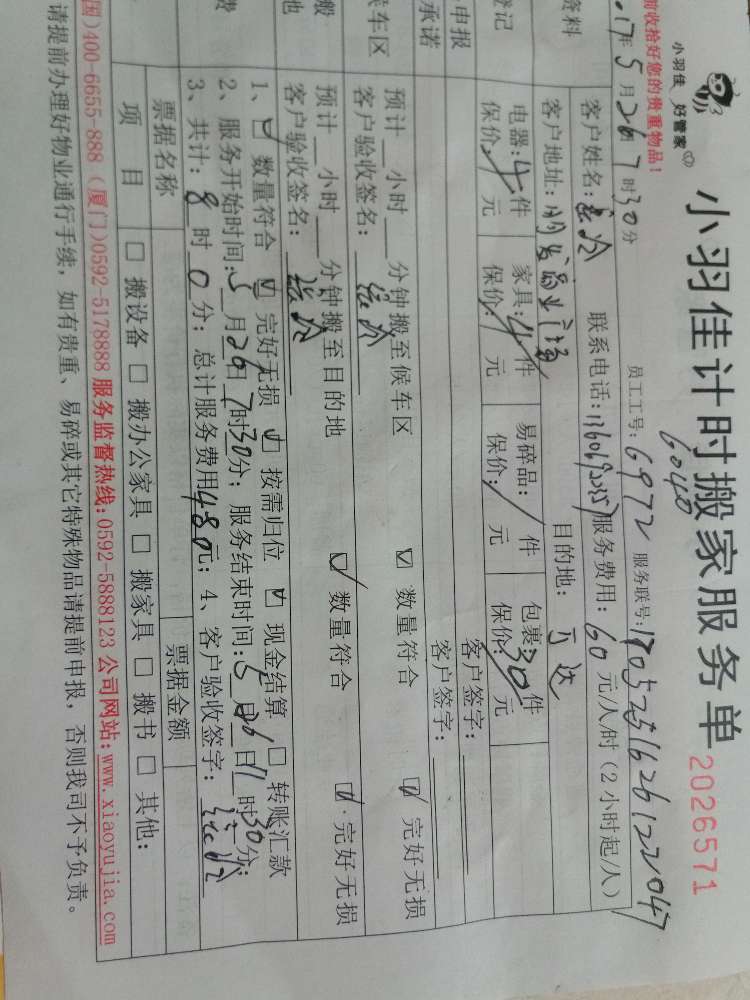 小羽佳 好管家
小羽佳计时搬家服务单 2026571
前收拾好您的贵重物品！
6040
17年5月26日7时30分 员工工号：6972 服务联号：
资料 客户姓名： 联系电话： 服务费用：60元/人/时（2小时起/人）
客户地址： 目的地：万达
登记 电器：4件 家具：4件 易碎品：/件 包裹：30件
保价：/元 保价：/元 保价：/元 保价：/元
申报 客户签字：
承诺 客户签字：
候车区 预计__小时__分钟搬至候车区 ☑ 数量符合 ☑ 完好无损
客户验收签名：
搬 预计__小时__分钟搬至目的地 ☑ 数量符合 ☑ 完好无损
地 客户验收签名：
费 1、☑ 数量符合 ☑ 完好无损 ☑ 按需归位 ☑ 现金结算 □ 转账汇款
2、服务开始时间：5月26日7时30分；服务结束时间：5月26日11时30分；
3、共计：8时0分；总计服务费用480元；4、客户验收签字：
票据名称 票据金额
项 目 □ 搬设备 □ 搬办公家具 □ 搬家具 □ 搬书 □ 其他：
国)400-6655-888（厦门)0592-5178888 服务监督热线:0592-5888123 公司网站:www.xiaoyujia.com
请提前办理好物业通行手续，如有贵重、易碎或其它特殊物品请提前申报，否则我司不予负责。